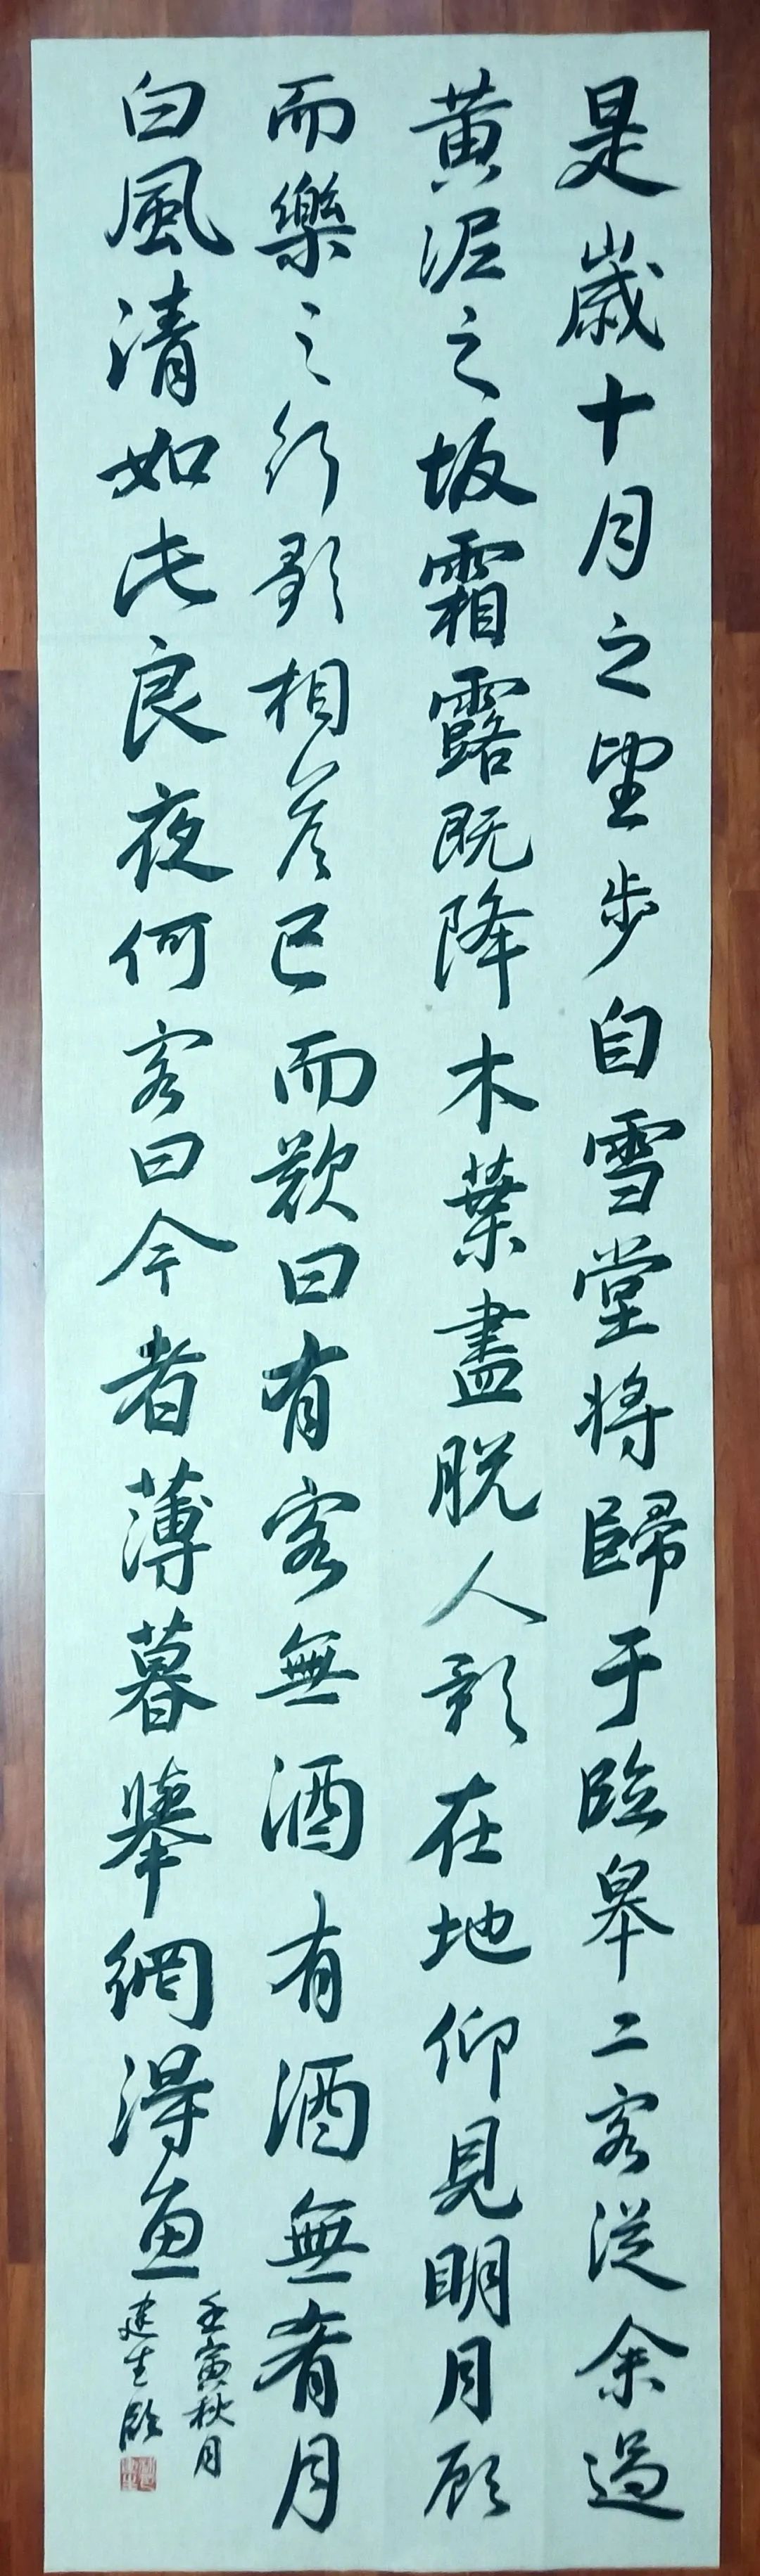 是歲十月之望步自雪堂將歸于臨皋二客從余過
黃泥之坂霜露既降木葉盡脱人影在地仰見明月顧
而樂之行歌相答已而歎曰有客無酒有酒無肴月
白風清如此良夜何客曰今者薄暮舉網得魚
壬寅秋月
建生